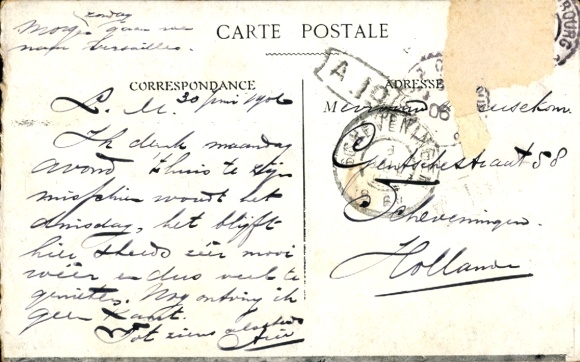 zondag
Morgen gaan we
naar Versailles.
CARTE POSTALE
CORRESPONDANCE
ADRESSE
A 19
L. M. 30 Juni 1906
Ik denk maandag
avond thuis te zijn
misschien wordt het
dinsdag, het blijft
hier steeds zéér mooi
wéér en dus veel te
genieten. Nog ontving ik
geen kaart.
Tot ziens
Mevrouw
SCHEVENINGEN
06
straat 58
Scheveningen.
Holland